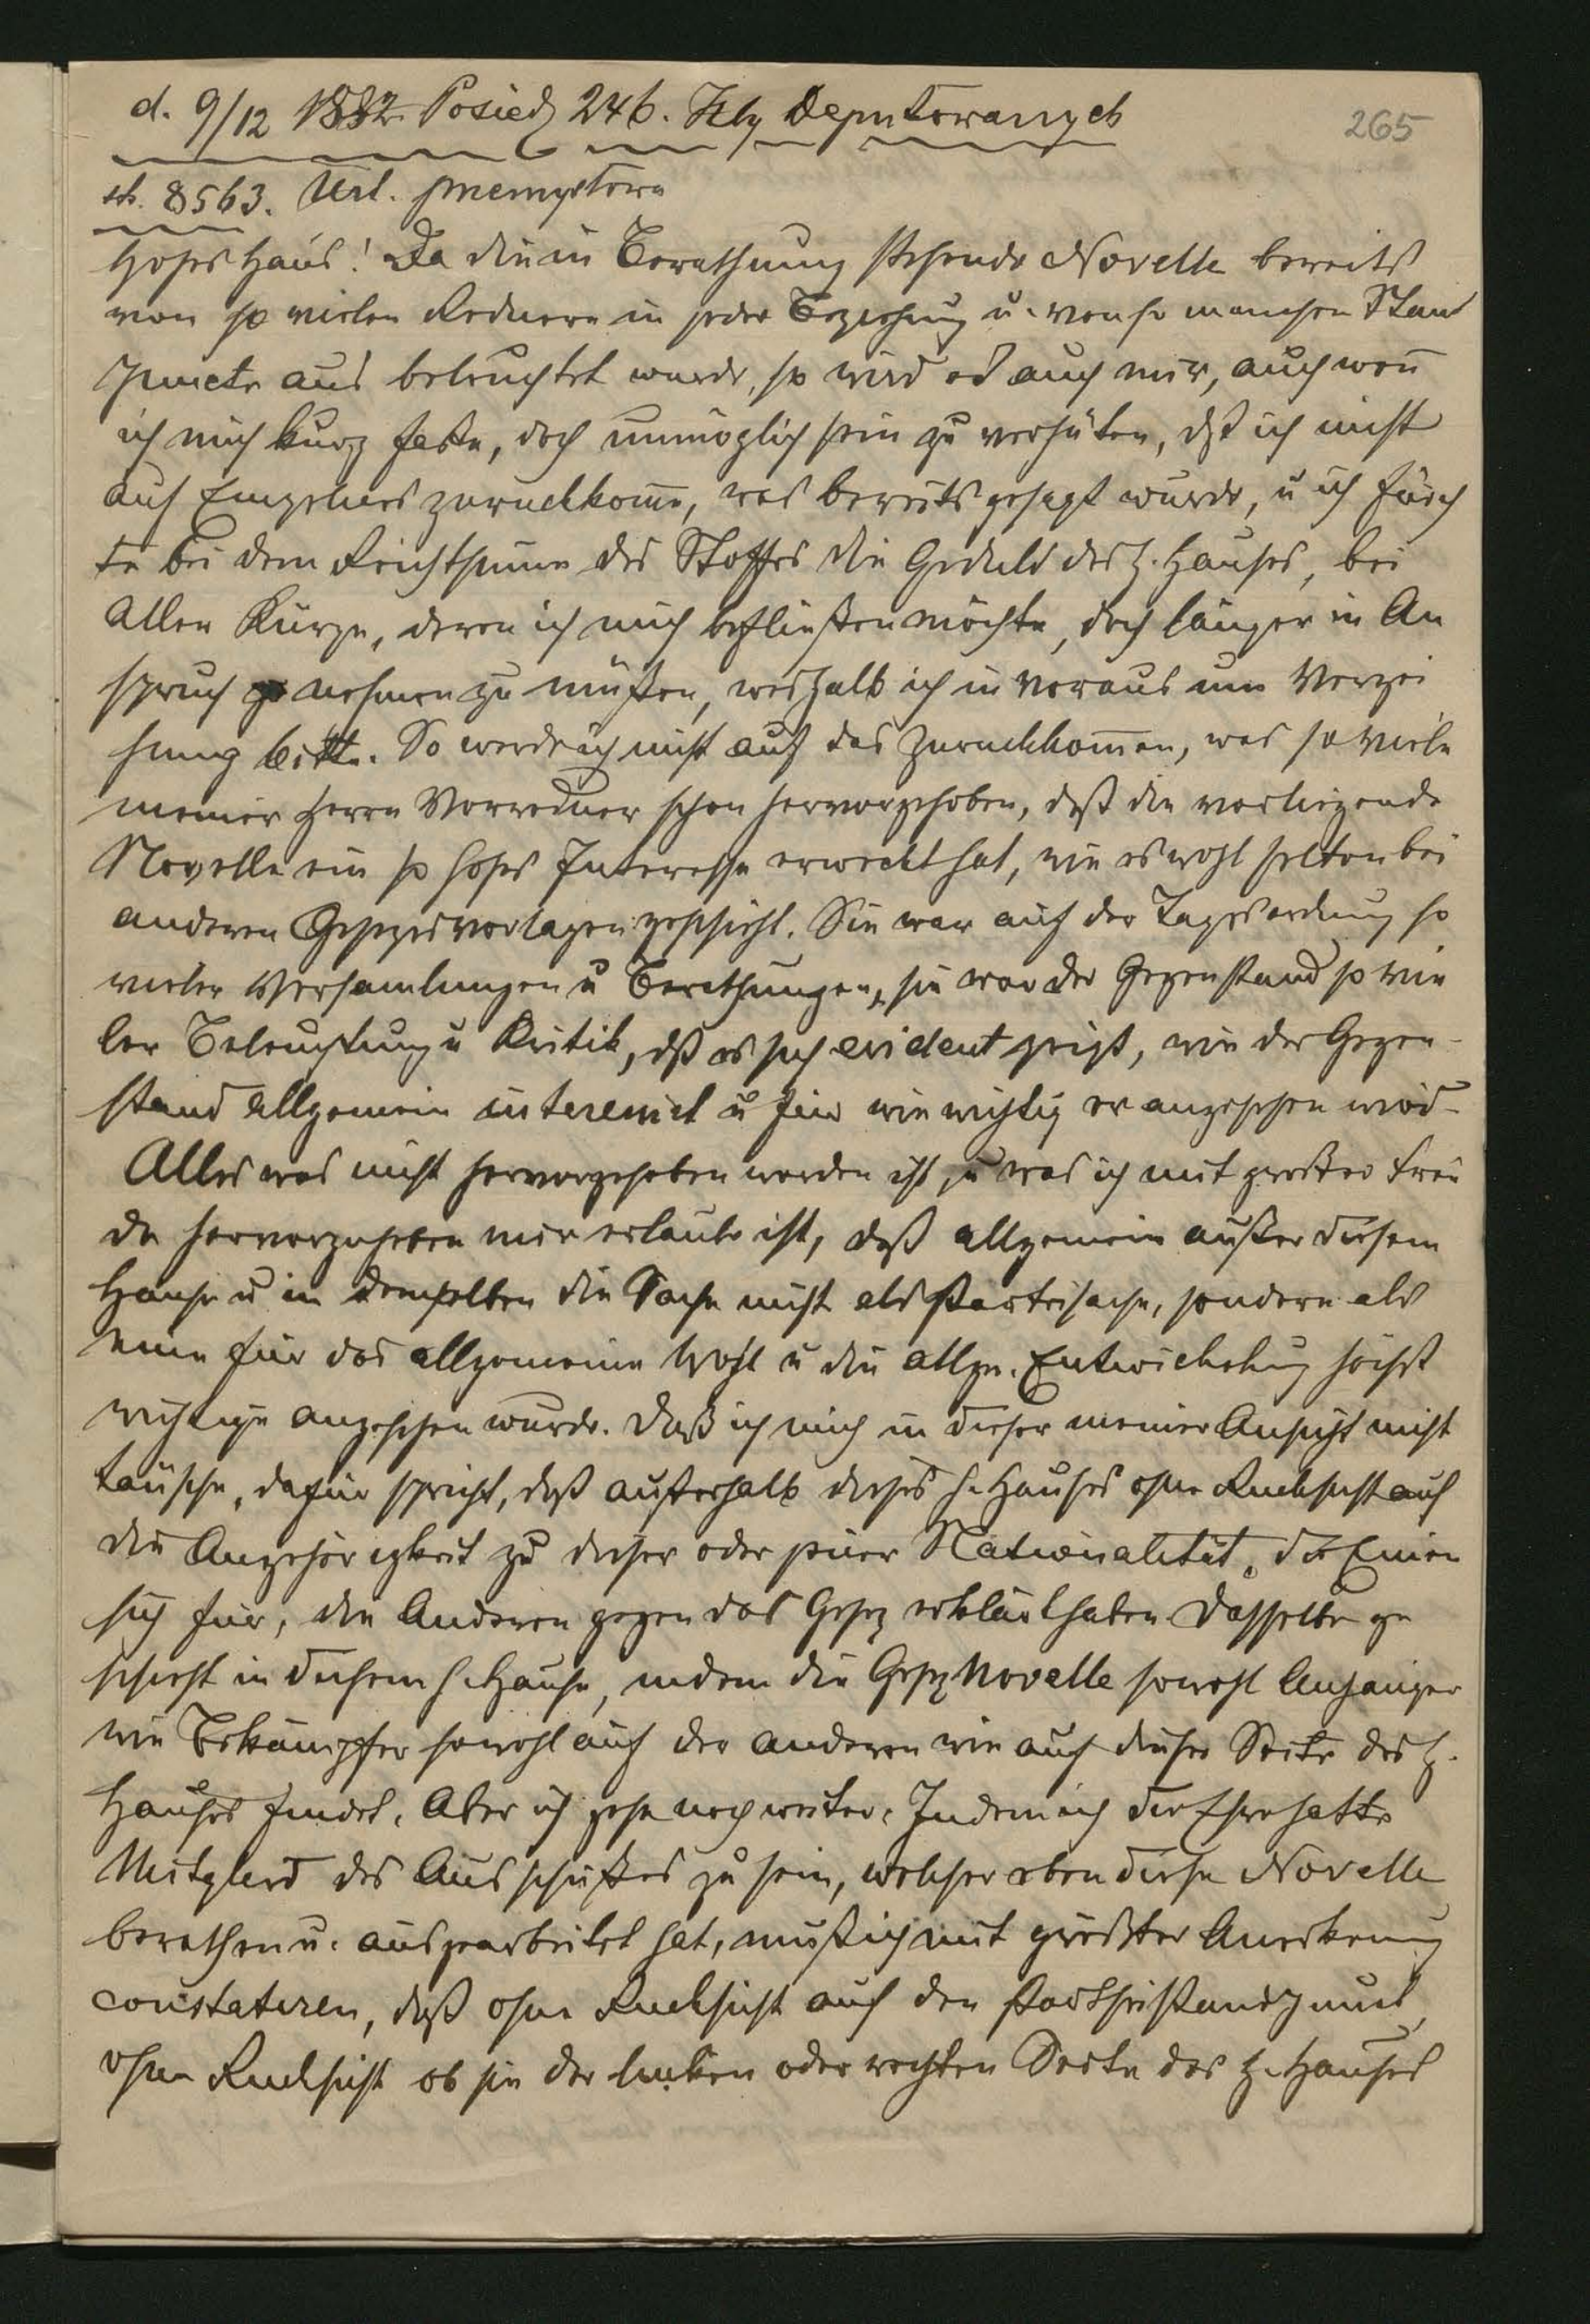 265
d. 9/12 1882 Posiedz 246. Izby Deputowanych
st. 8563. Ust. przemysłowa
Hohes Haus! Da die in Berathung stehende Novelle bereits
von so vielen Rednern in jeder Beziehung u. von so manchen Stand
puncte aus beleuchtet wurde, so wird es auch mir, auch wenn
ich mich kurz faße, doch unmöglich sein zu verhüten, dß ich nicht
auf Einzelnes zurückkomme, was bereits gesagt wurde, u ich fürch
te bei dem Reichthume des Stoffes die Geduld des h. Hauses, bei
aller Kürze, deren ich mich befließen möchte, doch länger in An
spruch nehmen zu müßen, weshalb ich in voraus um Verzei
hung bitte. So werde ich nicht auf das zurückkommen, was so viele
meiner Herrn Vorredner schon hervorgehoben, daß die vorliegende
Novelle ein so hohes Interesse erweckt hat, wie es wohl selten bei
anderen Gesezesvorlagen geschieht. Sie war auf der Tagesordnung so
vieler Versamlungen u Berathungen, sie war der Gegenstand so vie
ler Beleuchtung u Kritik, dß es sich evident zeigt, wie der Gegen-
stand allgemein interessiert u wie wichtig er angesehen wird.
Alles was nicht hervorgehoben worden ist, u was ich mit großer Freu
de hervorzuheben mir erlaube ist, daß allgemein außer diesem
Hause u in demselben die Sache nicht als Parteisache, sondern als
eine für das allgemeine Wohl u die allge. Entwickelung höchst
wichtige angesehen wurde. Daß ich mich in dieser meiner Ansicht nicht
täusche, dafür spricht, daß außerhalb dieses h. Hauses ohne Rücksicht auf
die Angehörigkeit zu dieser oder jener Nationalität, die Einen
sich für, die Anderen gegen das Gesez erklärt haben. Dasselbe ge
schieht in diesem h. Hause, indem die Gesez Novelle sowohl Anhänger
wie Bekämpfer sowohl auf der anderen wie auf dieser Seite des h.
Hauses findet. Aber ich gehe noch weiter. Indem ich die Ehre hatte
Mitglied des Ausschußes zu sein, welcher eben diese Novelle
berathen u. ausgearbeitet hat, muß ich mit größter Anerkennung
constatiren, daß ohne Rücksicht auf den Partheistandpunct,
ohne Rücksicht ob sie der linken oder rechten Seite des h. Hauses